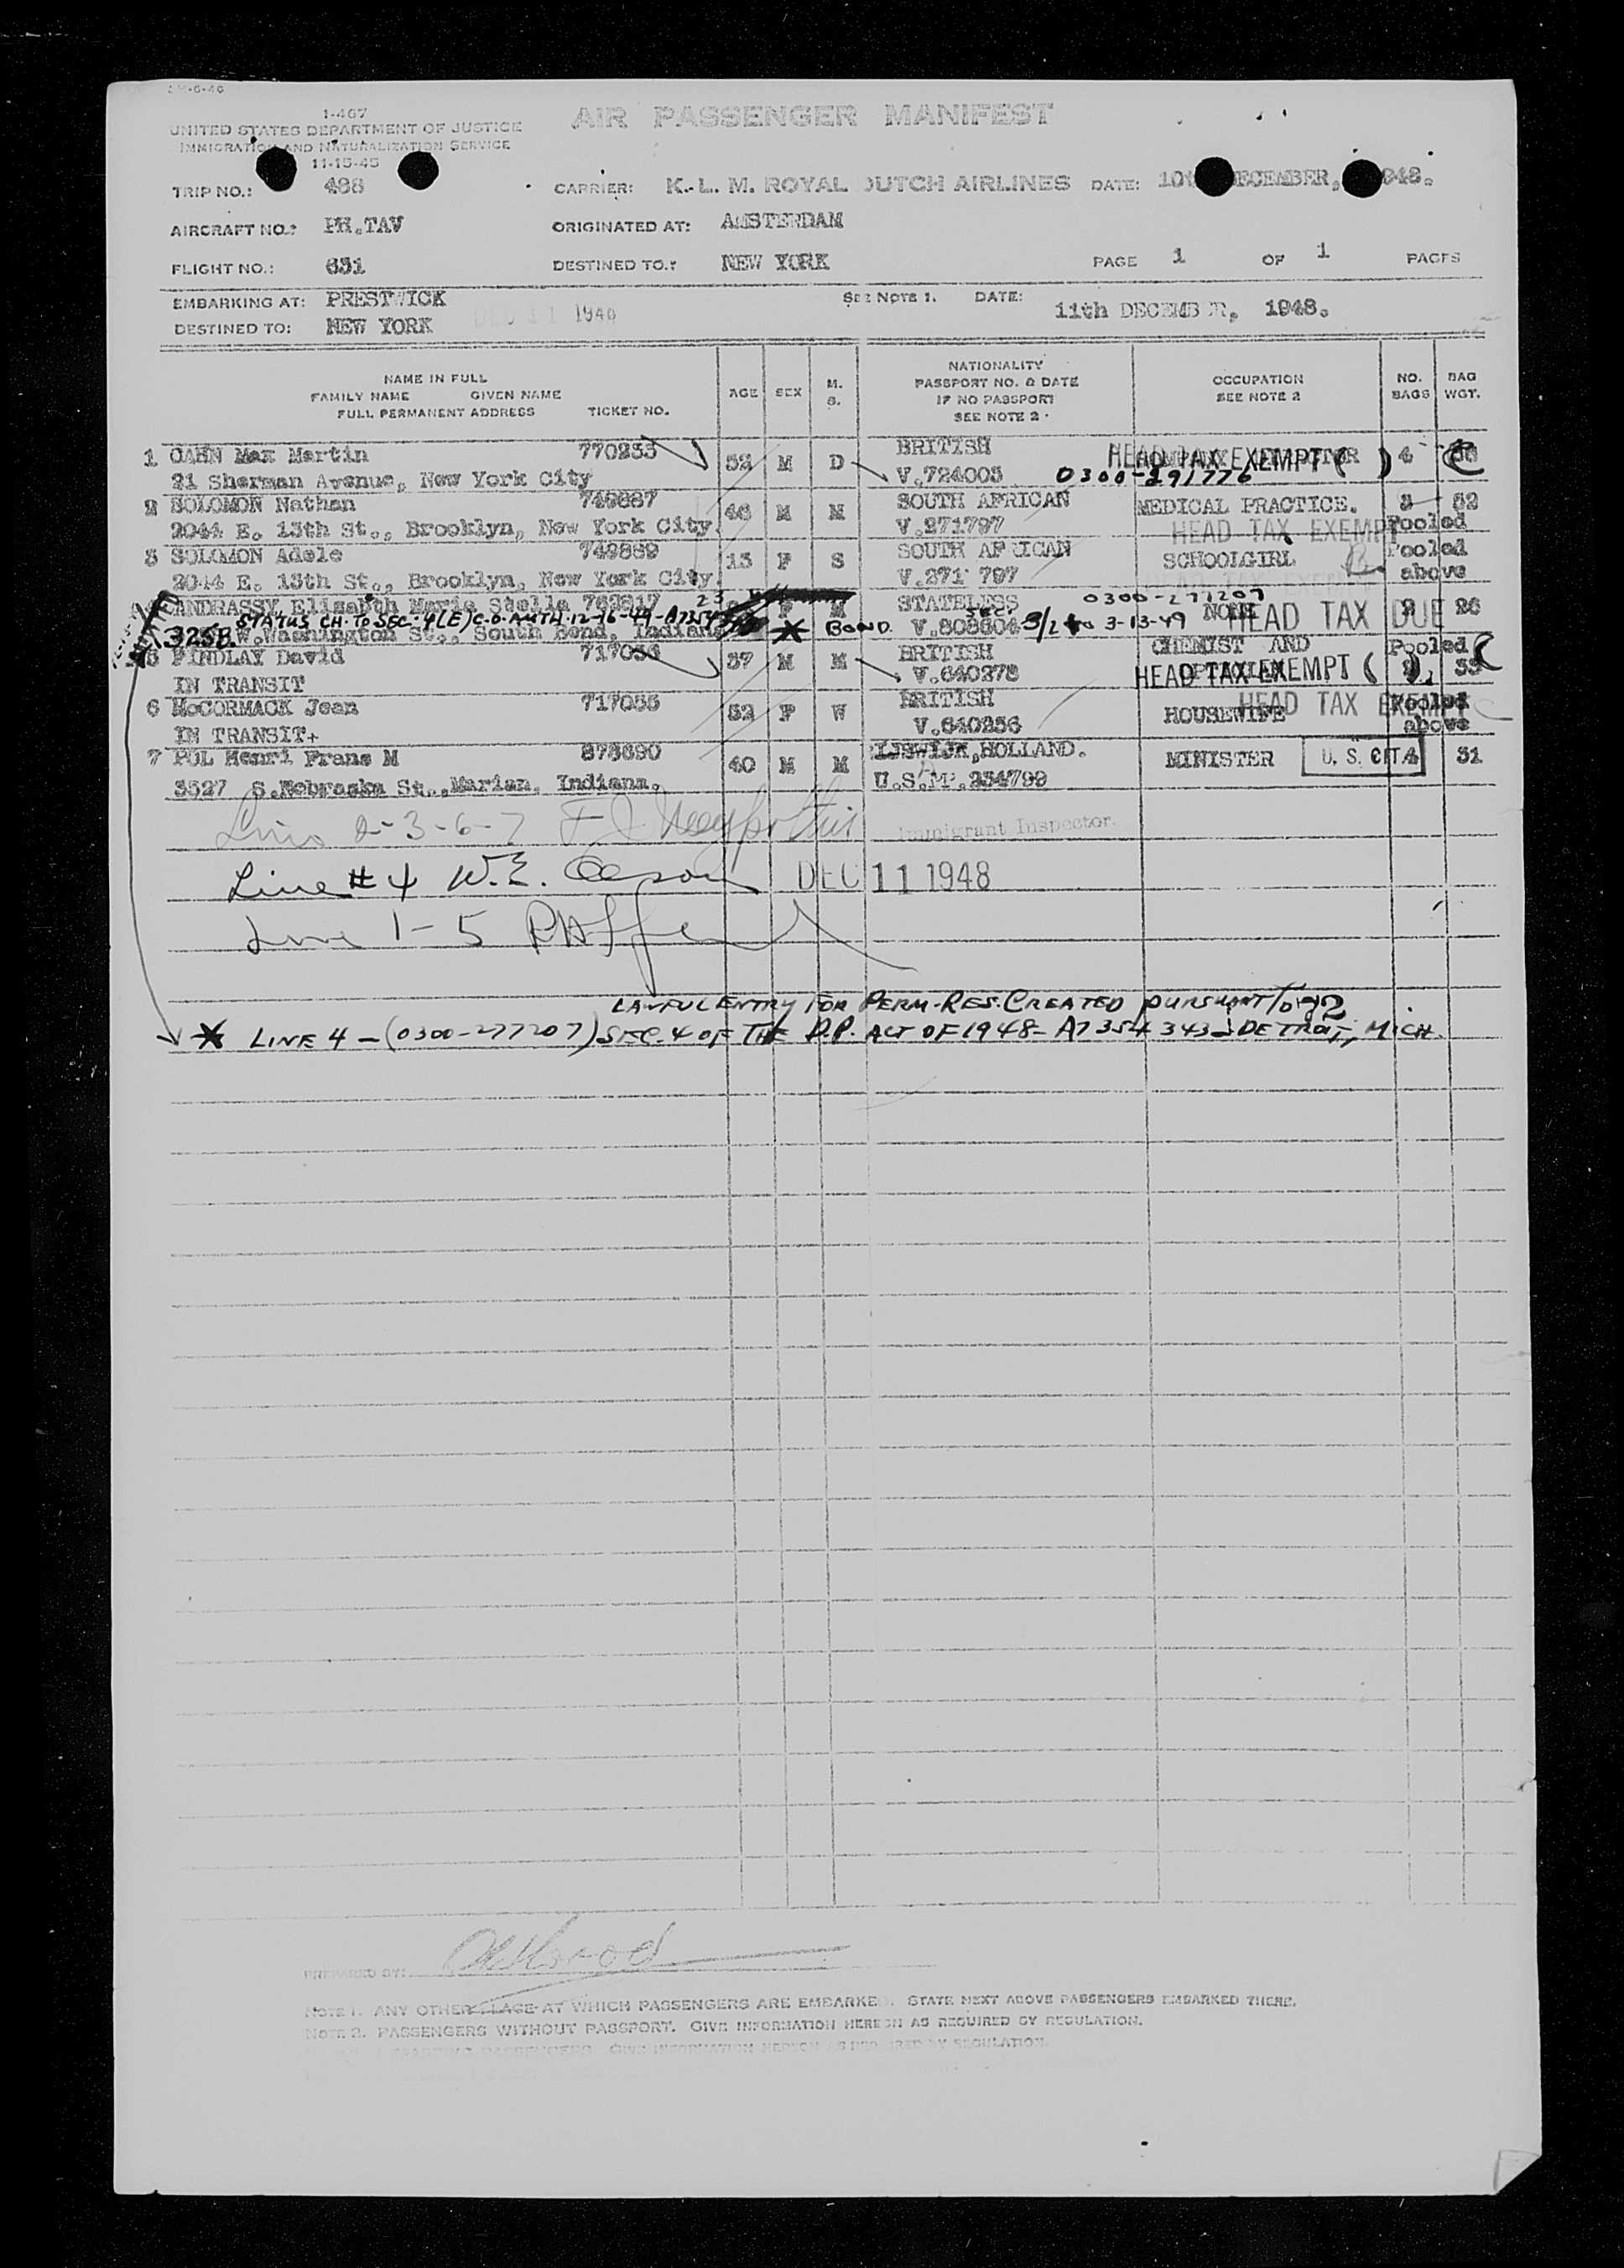 1-467
UNITED STATES DEPARTMENT OF JUSTICE
IMMIGRATION AND NATURALIZATION SERVICE
11-15-45
AIR PASSENGER MANIFEST
TRIP NO.: 488
CARRIER: K.L.M. ROYAL DUTCH AIRLINES
DATE: 10 DECEMBER, 1948.
AIRCRAFT NO.: PH.TAV
ORIGINATED AT: AMSTERDAM
FLIGHT NO.: 631
DESTINED TO.: NEW YORK
PAGE 1 OF 1 PAGES
EMBARKING AT: PRESTWICK
SEE NOTE 1. DATE: 11th DECEMBER, 1948.
DESTINED TO: NEW YORK
DEC 11 1948
NAME IN FULL
FAMILY NAME GIVEN NAME
FULL PERMANENT ADDRESS TICKET NO.
AGE SEX M. S.
NATIONALITY
PASSPORT NO. & DATE
IF NO PASSPORT
SEE NOTE 2
OCCUPATION
SEE NOTE 2
NO. BAGS
BAG WGT.
1 CAHN Max Martin 770233 52 M D BRITISH HEAD TAX EXEMPT ( ) 4
21 Sherman Avenue, New York City V.724003 0300-291776
2 SOLOMON Nathan 749887 46 M M SOUTH AFRICAN MEDICAL PRACTICE. 3 52
2044 E. 13th St., Brooklyn, New York City. V.271797 HEAD TAX EXEMPT Pooled
3 SOLOMON Adele 749889 13 F S SOUTH AFRICAN SCHOOLGIRL Pooled
2044 E. 13th St., Brooklyn, New York City. V.271 797 HEAD TAX EXEMPT above
ANDRASSY, Elisabeth Marie Stella 762817 23 F M STATELESS 0300-277207 NONE HEAD TAX DUE 2 26
STATUS CH. TO SEC. 4(E) C.O. AUTH. 12-16-49
325B. W. Washington St., South Bend, Indiana * BOND. V.808604 SEC. 3/2 to 3-13-49
5 FINDLAY David 717054 37 M M BRITISH CHEMIST AND Pooled
IN TRANSIT V.640278 HEAD TAX EXEMPT ( ) 53
6 McCORMACK Jean 717055 52 F W BRITISH HOUSEWIFE HEAD TAX EXEMPT Pooled
IN TRANSIT+ V.640256 above
7 POL Henri Frans M 873690 40 M M RIJSWIJK, HOLLAND. MINISTER U.S. CIT. 4 31
3527 S. Nebraska St., Marian, Indiana. U.S.PP.234799
Line 2-3-6-7
Immigrant Inspector.
Line #4 W.E.
DEC 11 1948
Line 1-5
LAWFUL ENTRY FOR PERM. RES. CREATED PURSUANT TO
* LINE 4 - (0300-277207) SEC. 4 OF THE D.P. ACT OF 1948 - A7354343 - DETROIT, MICH.
PREPARED BY:
NOTE 1. ANY OTHER PLACE AT WHICH PASSENGERS ARE EMBARKED. STATE NEXT ABOVE PASSENGERS EMBARKED THERE.
NOTE 2. PASSENGERS WITHOUT PASSPORT. GIVE INFORMATION HEREON AS REQUIRED BY REGULATION.